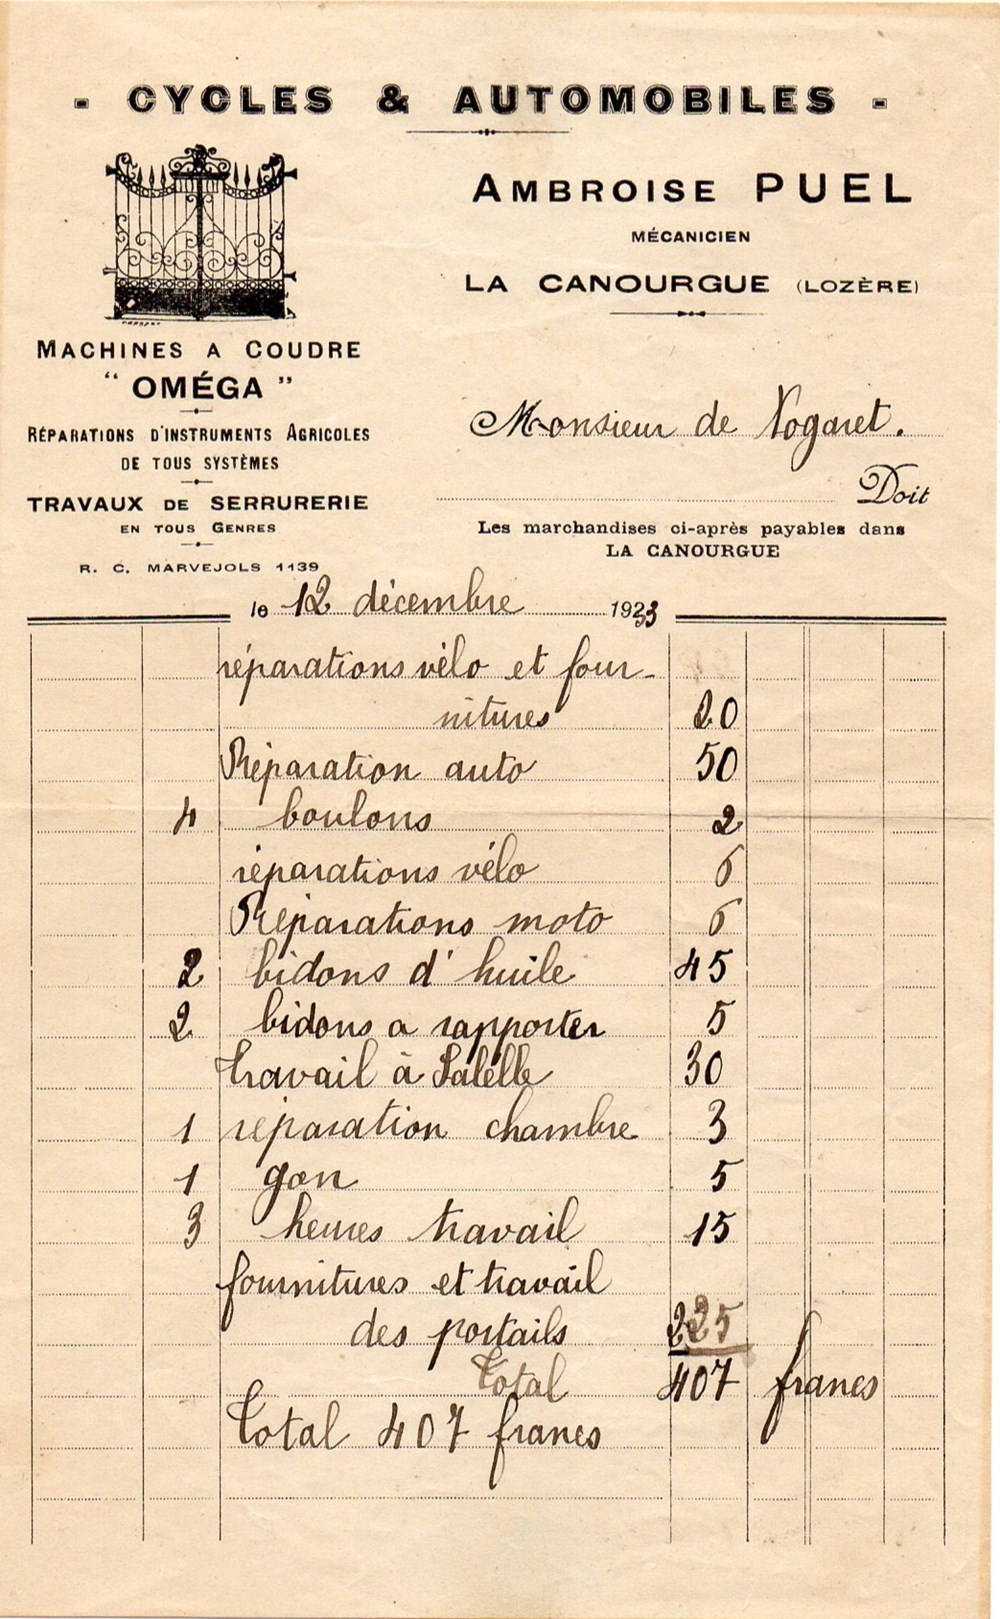 - CYCLES & AUTOMOBILES -
AMBROISE PUEL
MÉCANICIEN
LA CANOURGUE (LOZÈRE)
MACHINES A COUDRE
" OMÉGA "
RÉPARATIONS D'INSTRUMENTS AGRICOLES
DE TOUS SYSTÈMES
TRAVAUX DE SERRURERIE
EN TOUS GENRES
R. C. MARVEJOLS 1139
Monsieur de Nogaret.
Doit
Les marchandises ci-après payables dans
LA CANOURGUE
le 12 décembre 1933
réparations vélo et four-
nitures 20
Réparation auto 50
4 boulons 2
réparations vélo 6
Réparations moto 6
2 bidons d'huile 45
2 bidons a rapporter 5
travail à Salelle 30
1 réparation chambre 3
1 gon 5
3 heures travail 15
fournitures et travail
des portails 225
Total 407 francs
Total 407 francs